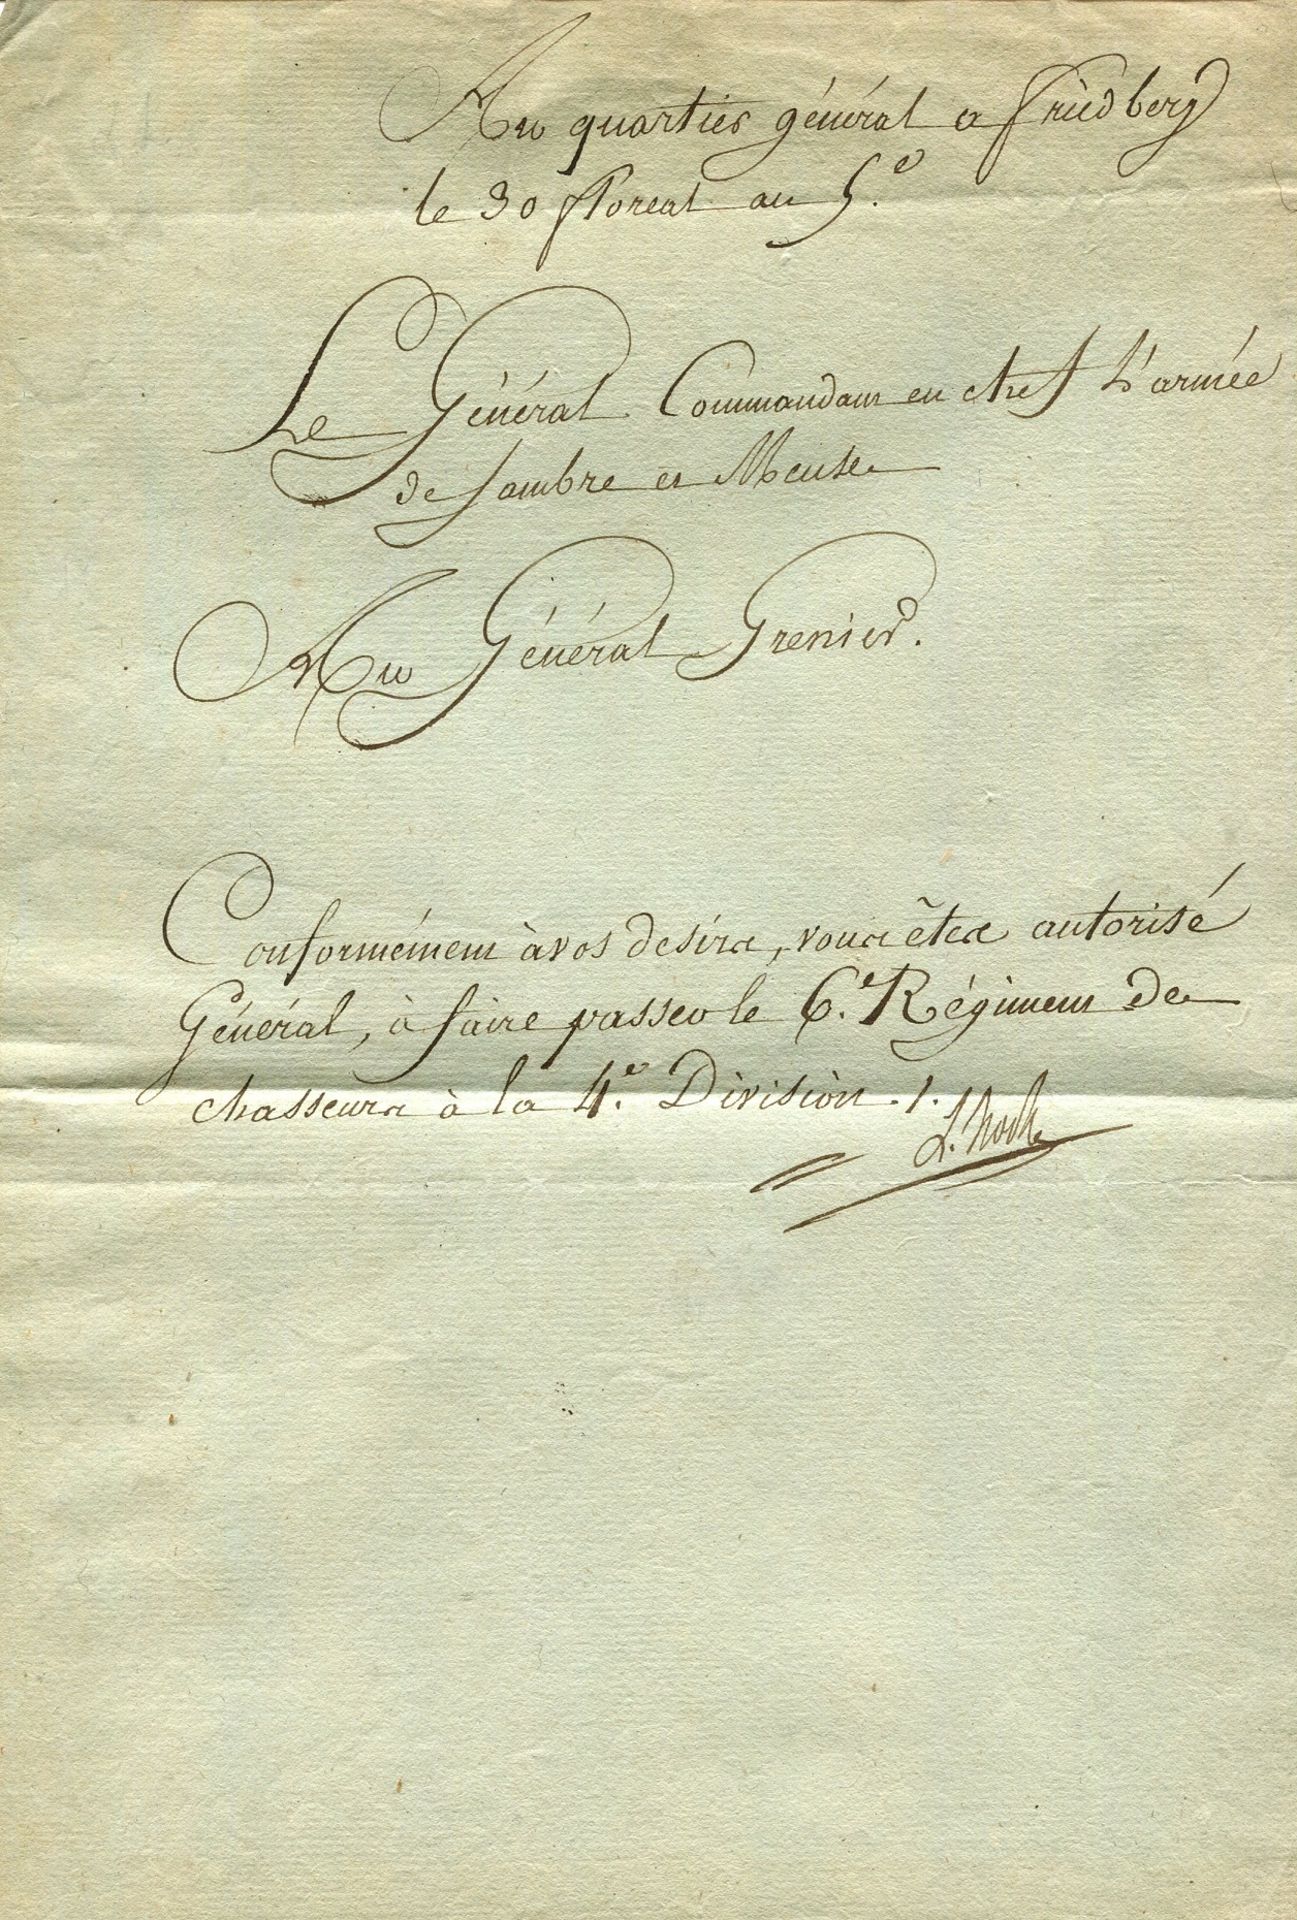 Au quartier général a friedberg
le 30 floreal an 5.e
Le Général Commandant en chef L'armée
de Sambre et Meuse
Au Général Grenier.
Conformément à vos desirs, vous êtes autorisé
Général, à faire passer le 6.e Régiment de
chasseurs à la 4.e Division ./.
L. Hoche